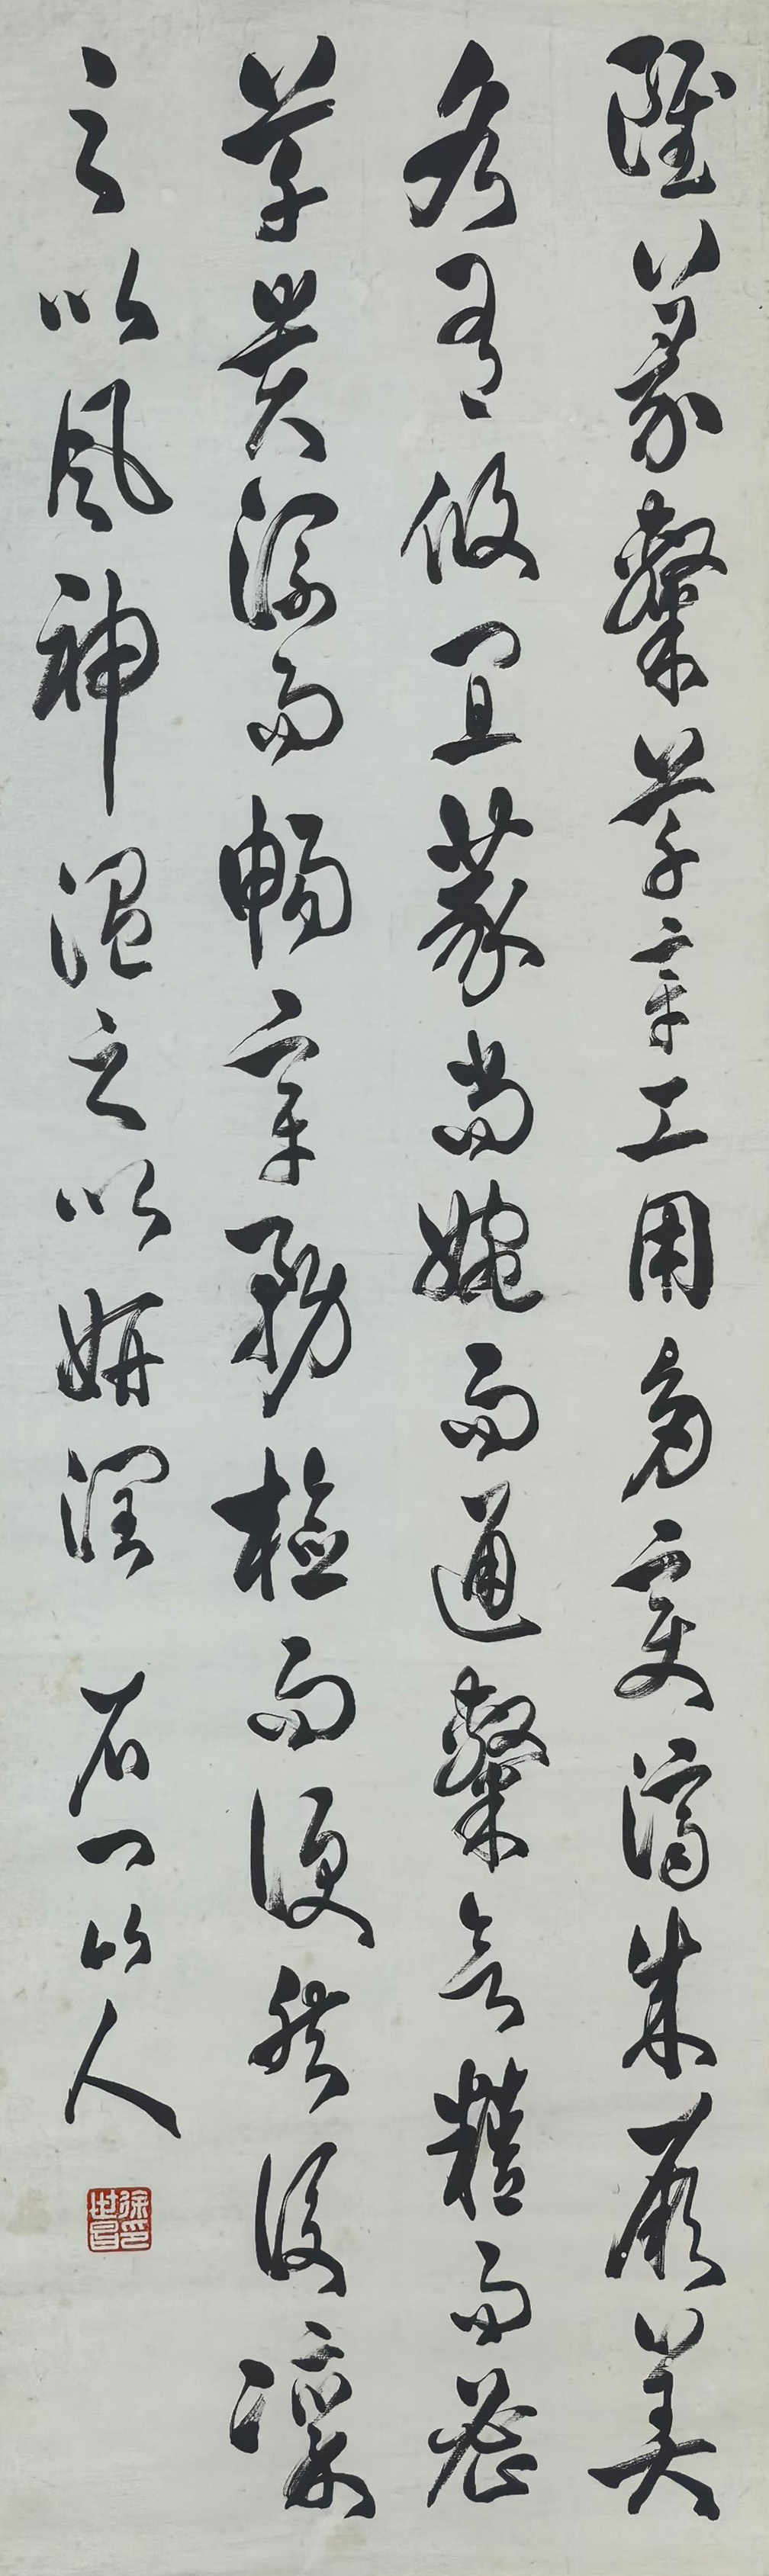 雖篆隸草章工用多變濟成厥美
各有攸宜篆尚婉而通隸欲精而密
草貴流而暢章務檢而便然後凜
之以風神溫之以妍潤 石門山人
徐世昌印